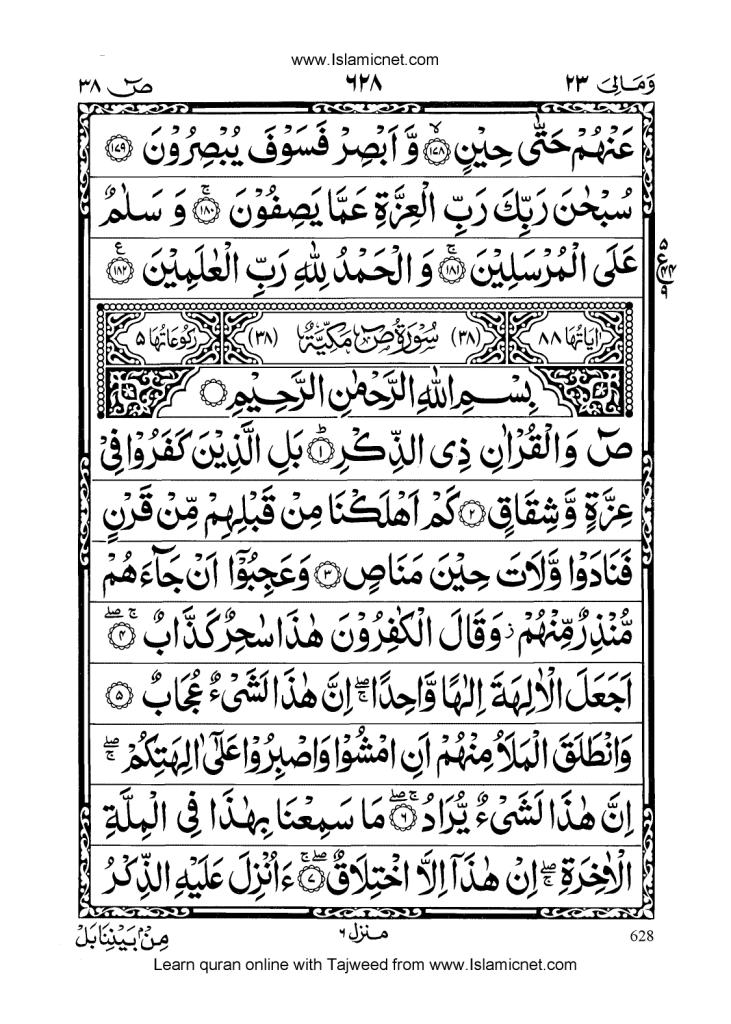 www.Islamicnet.com
وَمَالِیَ ٢٣ ٦٢٨ صٓ ٣٨
عَنْهُمْ حَتّٰى حِيْنٍ ۙ﴿١٧٨﴾ وَّ اَبْصِرْ فَسَوْفَ يُبْصِرُوْنَ ﴿١٧٩﴾
سُبْحٰنَ رَبِّكَ رَبِّ الْعِزَّةِ عَمَّا يَصِفُوْنَ ۚ﴿١٨٠﴾ وَ سَلٰمٌ
عَلَى الْمُرْسَلِيْنَ ۚ﴿١٨١﴾ وَ الْحَمْدُ لِلّٰهِ رَبِّ الْعٰلَمِيْنَ ﴿١٨٢﴾ ع
٥ ع ٤٤ ٩
اٰيَاتُهَا ٨٨ (٣٨) سُوْرَةُ صٓ مَكِّيَّةٌ (٣٨) رُكُوْعَاتُهَا ٥
بِسْمِ اللّٰهِ الرَّحْمٰنِ الرَّحِيْمِ
صٓ وَالْقُرْاٰنِ ذِى الذِّكْرِ ؕ﴿١﴾ بَلِ الَّذِيْنَ كَفَرُوْا فِىْ
عِزَّةٍ وَّشِقَاقٍ ﴿٢﴾ كَمْ اَهْلَكْنَا مِنْ قَبْلِهِمْ مِّنْ قَرْنٍ
فَنَادَوْا وَّلَاتَ حِيْنَ مَنَاصٍ ﴿٣﴾ وَعَجِبُوْٓا اَنْ جَآءَهُمْ
مُّنْذِرٌ مِّنْهُمْ ز وَقَالَ الْكٰفِرُوْنَ هٰذَا سٰحِرٌ كَذَّابٌ ۖۚ﴿٤﴾
اَجَعَلَ الْاٰلِهَةَ اِلٰهًا وَّاحِدًا ۖۚ اِنَّ هٰذَا لَشَىْءٌ عُجَابٌ ﴿٥﴾
وَانْطَلَقَ الْمَلَاُ مِنْهُمْ اَنِ امْشُوْا وَاصْبِرُوْا عَلٰٓى اٰلِهَتِكُمْ ۖۚ
اِنَّ هٰذَا لَشَىْءٌ يُّرَادُ ۖۚ﴿٦﴾ مَا سَمِعْنَا بِهٰذَا فِى الْمِلَّةِ
الْاٰخِرَةِ ۖۚ اِنْ هٰذَآ اِلَّا اخْتِلَاقٌ ۖۚ﴿٧﴾ ءَاُنْزِلَ عَلَيْهِ الذِّكْرُ
628 منزل ٦ مِنْۢ بَيْنِنَا بَلْ
Learn quran online with Tajweed from www.Islamicnet.com